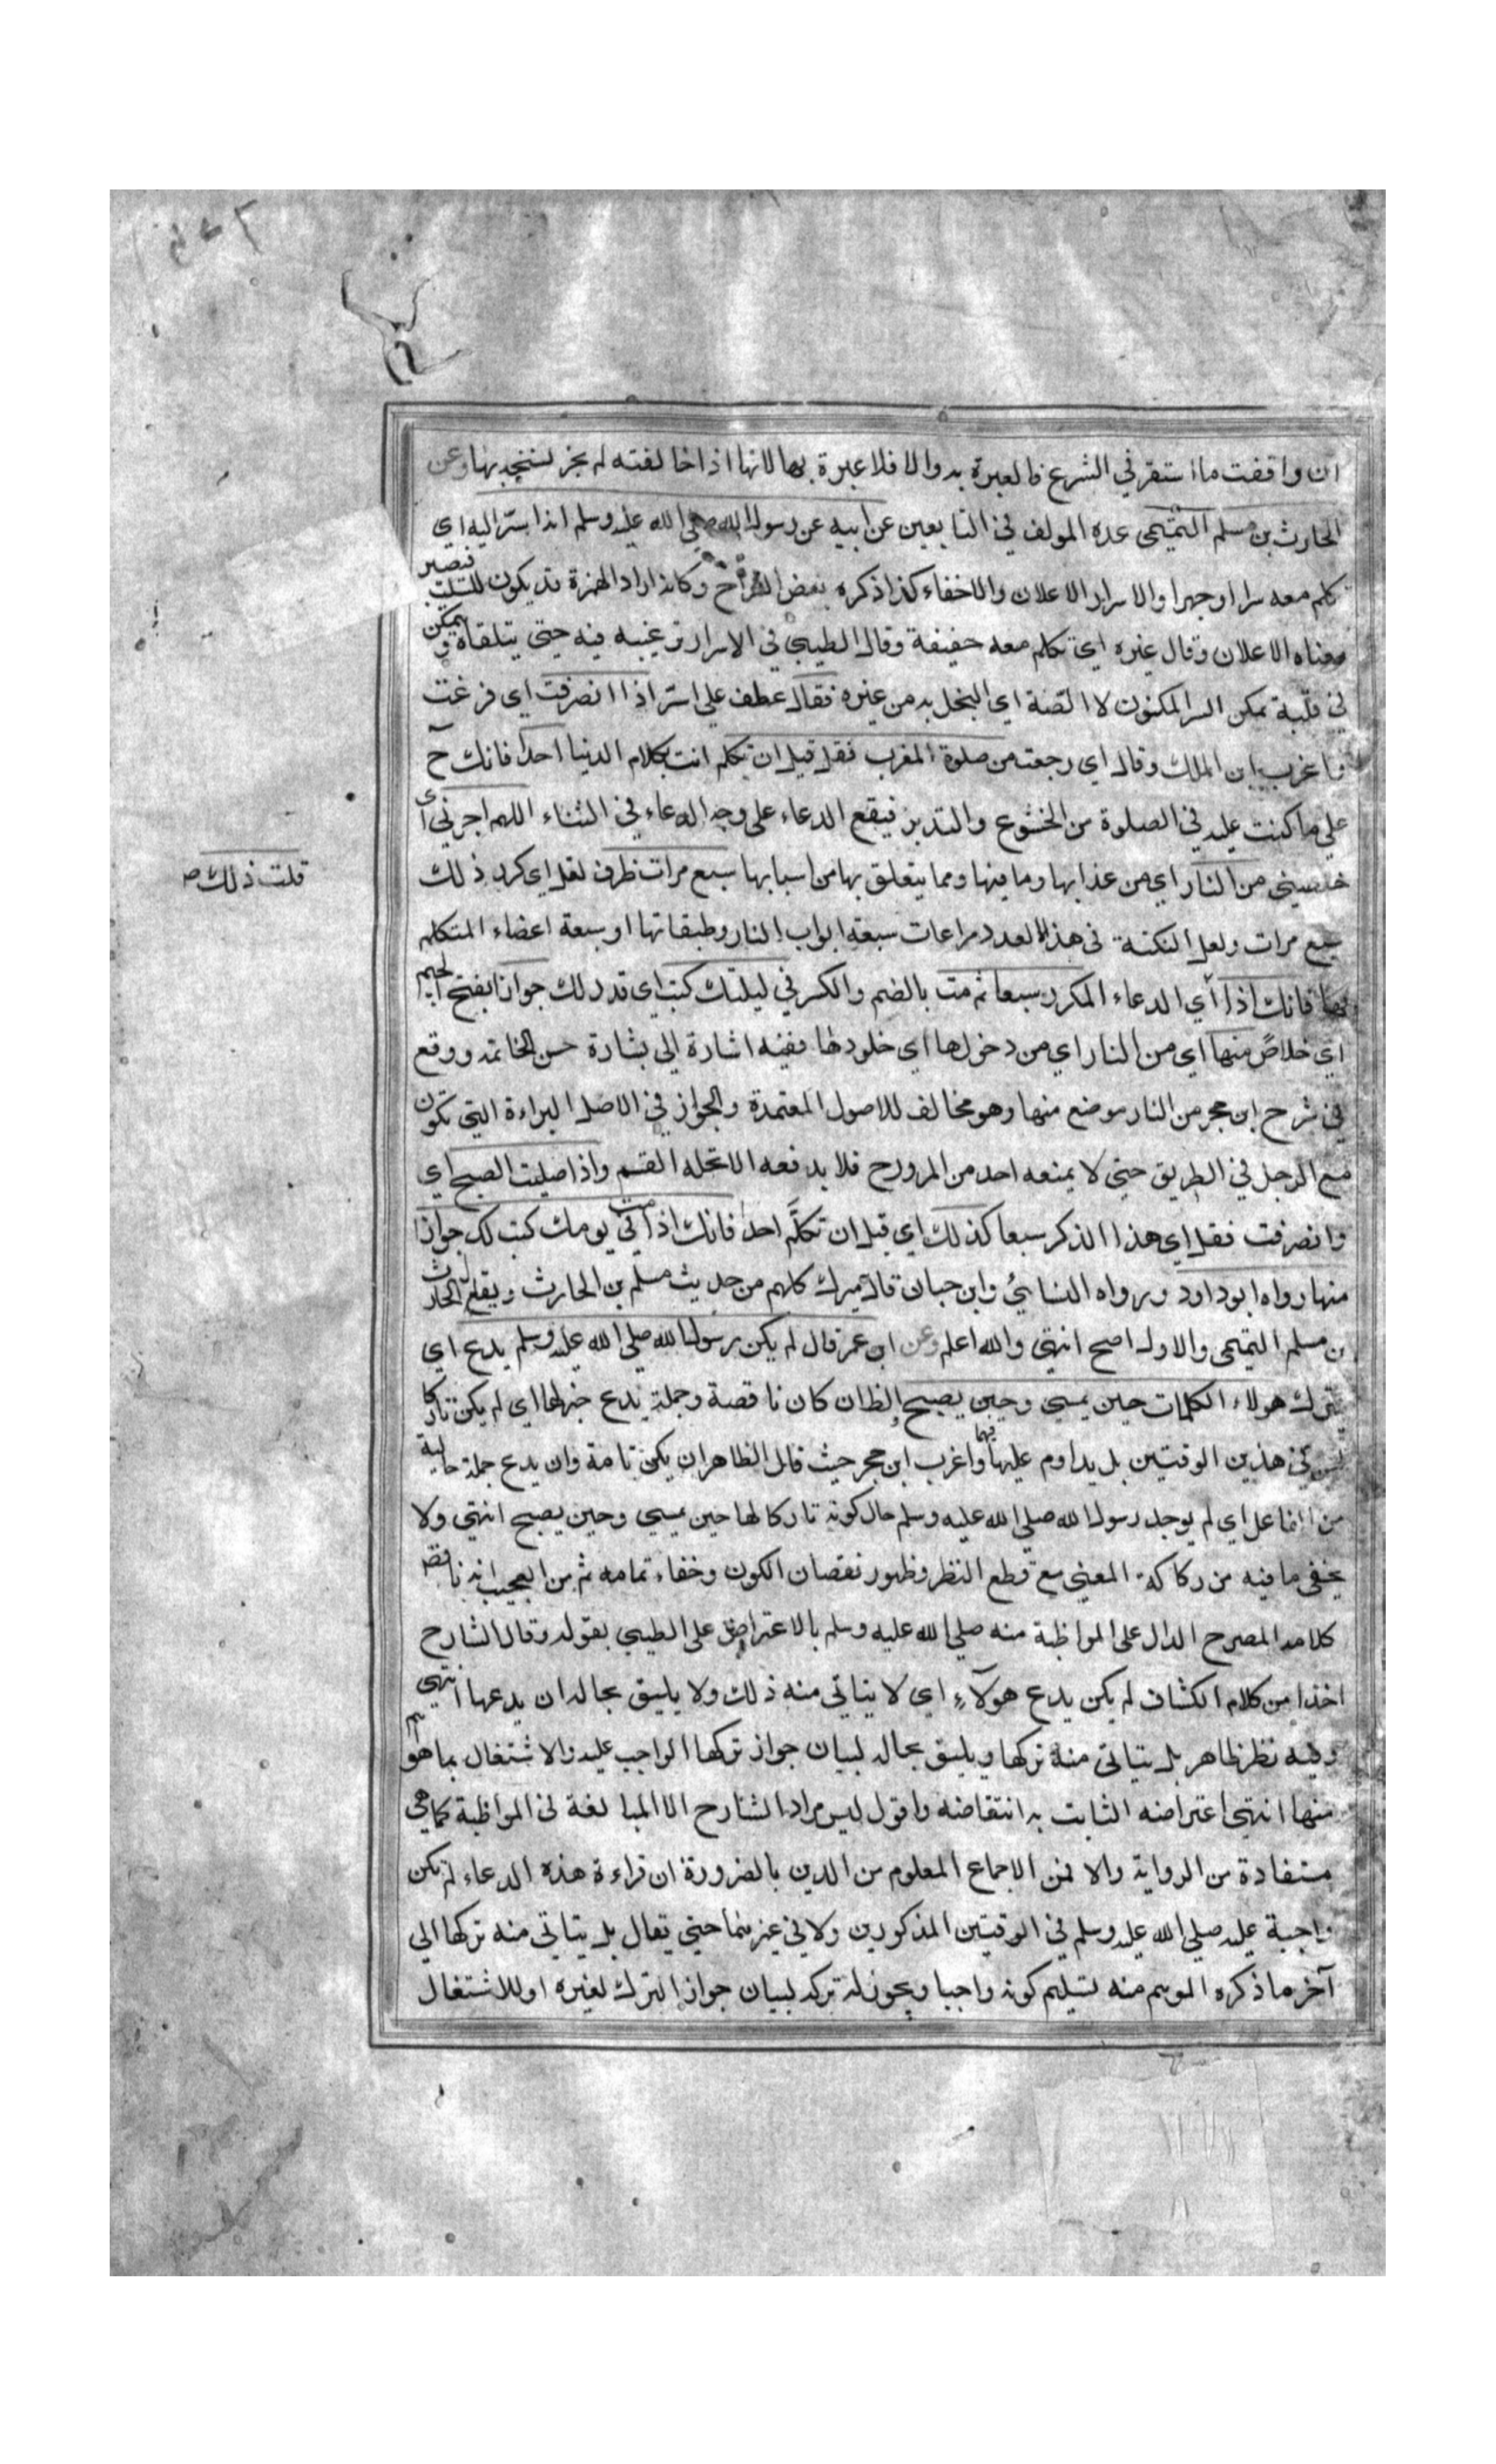 ان وافقت ما استقر في الشرع فالعبرة به والا فلا عبرة بها لانها اذا خالفته لم يجز لسنجد بها وعن
الحارث بن مسلم التميمي عده المولف في التابعين عن ابيه عن رسول الله صلى الله عليه وسلم انه اسر اليه اي
تكلم معه سرا او جهرا والاسرار الاعلان والاخفاء كذا ذكره بعض الشراح وكانه اراد الهمزة قد يكون للسلب فيصير
معناه الاعلان وقال غيره اي تكلم معه خفيفة وقال الطيبي في الاسرار ترغيبه فيه حتى يتلقاه ويمكن
في قلبه تمكن السر المكنون لا الضنة اي البخل به من غيره فقال عطف على اسر اذا انصرفت اي فرغت
واغرب ابن الملك وقال اي رجعت من صلوة المغرب فقل قبل ان تكلم انت بكلام الدنيا احدا فانك ح
على ما كنت عليه في الصلوة من الخشوع والتدبر فيقع الدعاء على وجه الدعاء في الثناء اللهم اجرني اى
خلصني من النار اي من عذابها وما فيها ومما يتعلق بها من اسبابها سبع مرات ظرف لقل اي كرر ذلك
سبع مرات ولعل النكتة في هذا العدد مراعات سبعة ابواب النار وطبقاتها او سبعة اعضاء المتكلم
بها فانك اذا اي الدعاء المكرر سبعا ثم مت بالضم والكسر في ليلتك كتب اي قدر لك جواز بفتح الجيم
قلت ذلك صـ
اي خلاص منها اي من النار اي من دخولها اي خلودها ففيه اشارة الى بشارة حسن الخاتمة ووقع
في شرح ابن حجر من النار موضع منها وهو مخالف للاصول المعتمدة والجواز في الاصل البراءة التي تكون
مع الرجل في الطريق حتى لا يمنعه احد من المرور ح فلا يدفعه الا تحله القسم واذا صليت الصبح اي
وانصرفت فقل اي هذا الذكر سبعا كذلك اي قبل ان تكلم احدا فانك اذا مت في يومك كتب لك جواز
منها رواه ابو داود ورواه النسائي وابن حبان قال ميرك كلهم من حديث مسلم بن الحارث ويقال الحارث
بن مسلم التميمي والاول اصح انتهى والله اعلم وعن ابن عمر قال لم يكن رسول الله صلى الله عليه وسلم يدع اي
يترك هولاء الكلمات حين يمسي وحين يصبح الظ ان كان ناقصة وجملة يدع خبرها اي لم يكن تاركا
لهن في هذين الوقتين بل يداوم عليها فيهما واغرب ابن حجر حيث قال الظاهر ان يكن تامة وان يدع جملة حالية
من الفاعل اي لم يوجد رسول الله صلى الله عليه وسلم حال كونه تاركا لها حين يمسي وحين يصبح انتهى ولا
يخفى ما فيه من ركاكة المعنى مع قطع النظر وظهور نقصان الكون وخفاء تمامه ثم من العجيب انه ناقض
كلامه المصرح الدال على المواظبة منه صلى الله عليه وسلم بالاعتراض على الطيبي بقوله وقال الشارح
اخذا من كلام الكشاف لم يكن يدع هولاء اي لا يتاتى منه ذلك ولا يليق بحاله ان يدعها انتهى
وفيه نظر ظاهر بل يتاتى منه تركها ويليق بحاله لبيان جواز تركها الواجب عليه والاشتغال بما هو اهم
منها انتهى اعتراضه الثابت به انتقاضه واقول ليس مراد الشارح الا المبالغة في المواظبة كما هي
مستفادة من الرواية والا فمن الاجماع المعلوم من الدين بالضرورة ان قراءة هذه الدعاء لم يكن
واجبة عليه صلى الله عليه وسلم في الوقتين المذكورين ولا في غيرهما حتى يقال بل يتاتى منه تركها الى
آخر ما ذكره الموهم منه تسليم كونه واجبا ويجوز له تركه لبيان جواز الترك لغيره او للاشتغال